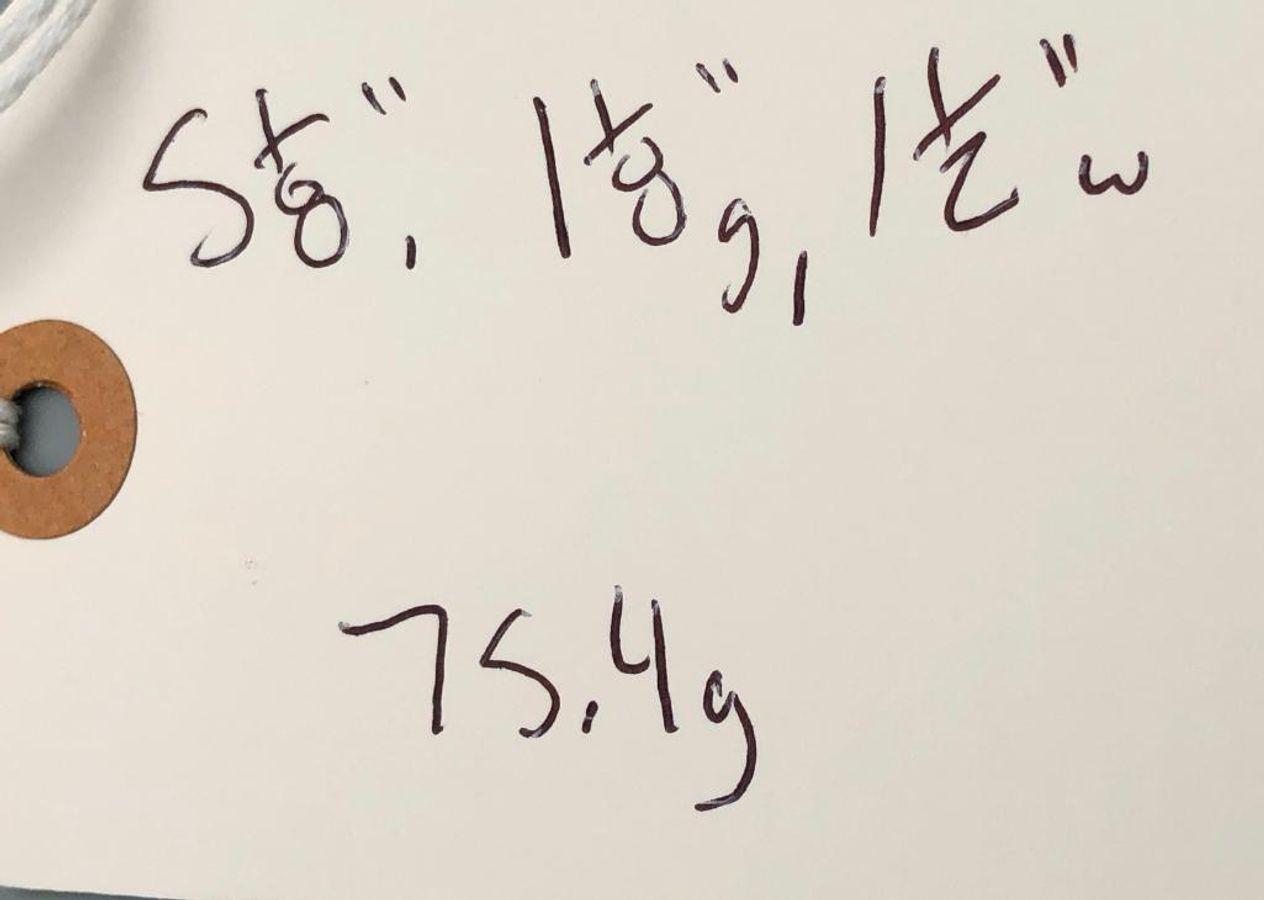 5 1/8", 1 1/8" g, 1 1/2" w
75.4g